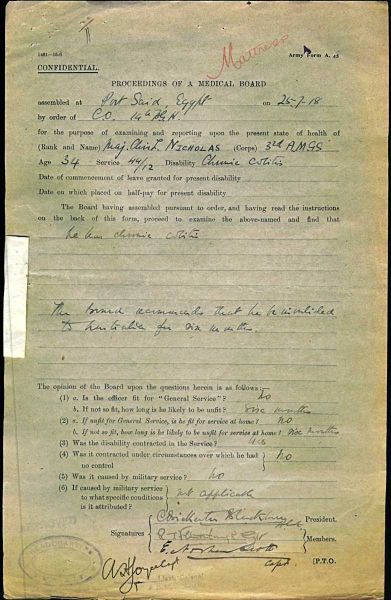 Mattress
1481—15/6
Army Form A. 45
CONFIDENTIAL.
PROCEEDINGS OF A MEDICAL BOARD
assembled at Port Said, Egypt on 25-7-18
by order of C.O. 14th A.G.H.
for the purpose of examining and reporting upon the present state of health of
(Rank and Name) Maj. NICHOLAS (Corps) 3rd A.M.G.S
Age 34 Service 44/12 Disability Chronic colitis
Date of commencement of leave granted for present disability
Date on which placed on half-pay for present disability
The Board having assembled pursuant to order, and having read the instructions
on the back of this form, proceed to examine the above-named and find that
he has chronic colitis
The board recommends that he be invalided
to Australia for six months.
The opinion of the Board upon the questions herein is as follows:—
(1) a. Is the officer fit for "General Service"? No
b. If not so fit, how long is he likely to be unfit? six months
(2) a. If unfit for General Service, is he fit for service at home? No
b. If not so fit, how long is he likely to be unfit for service at home? Six months
(3) Was the disability contracted in the Service? yes
(4) Was it contracted under circumstances over which he had no control } No
(5) Was it caused by military service? No
(6) If caused by military service
to what specific conditions } not applicable
is it attributed?
President.
Signatures
Members.
Capt.
[P.T.O.